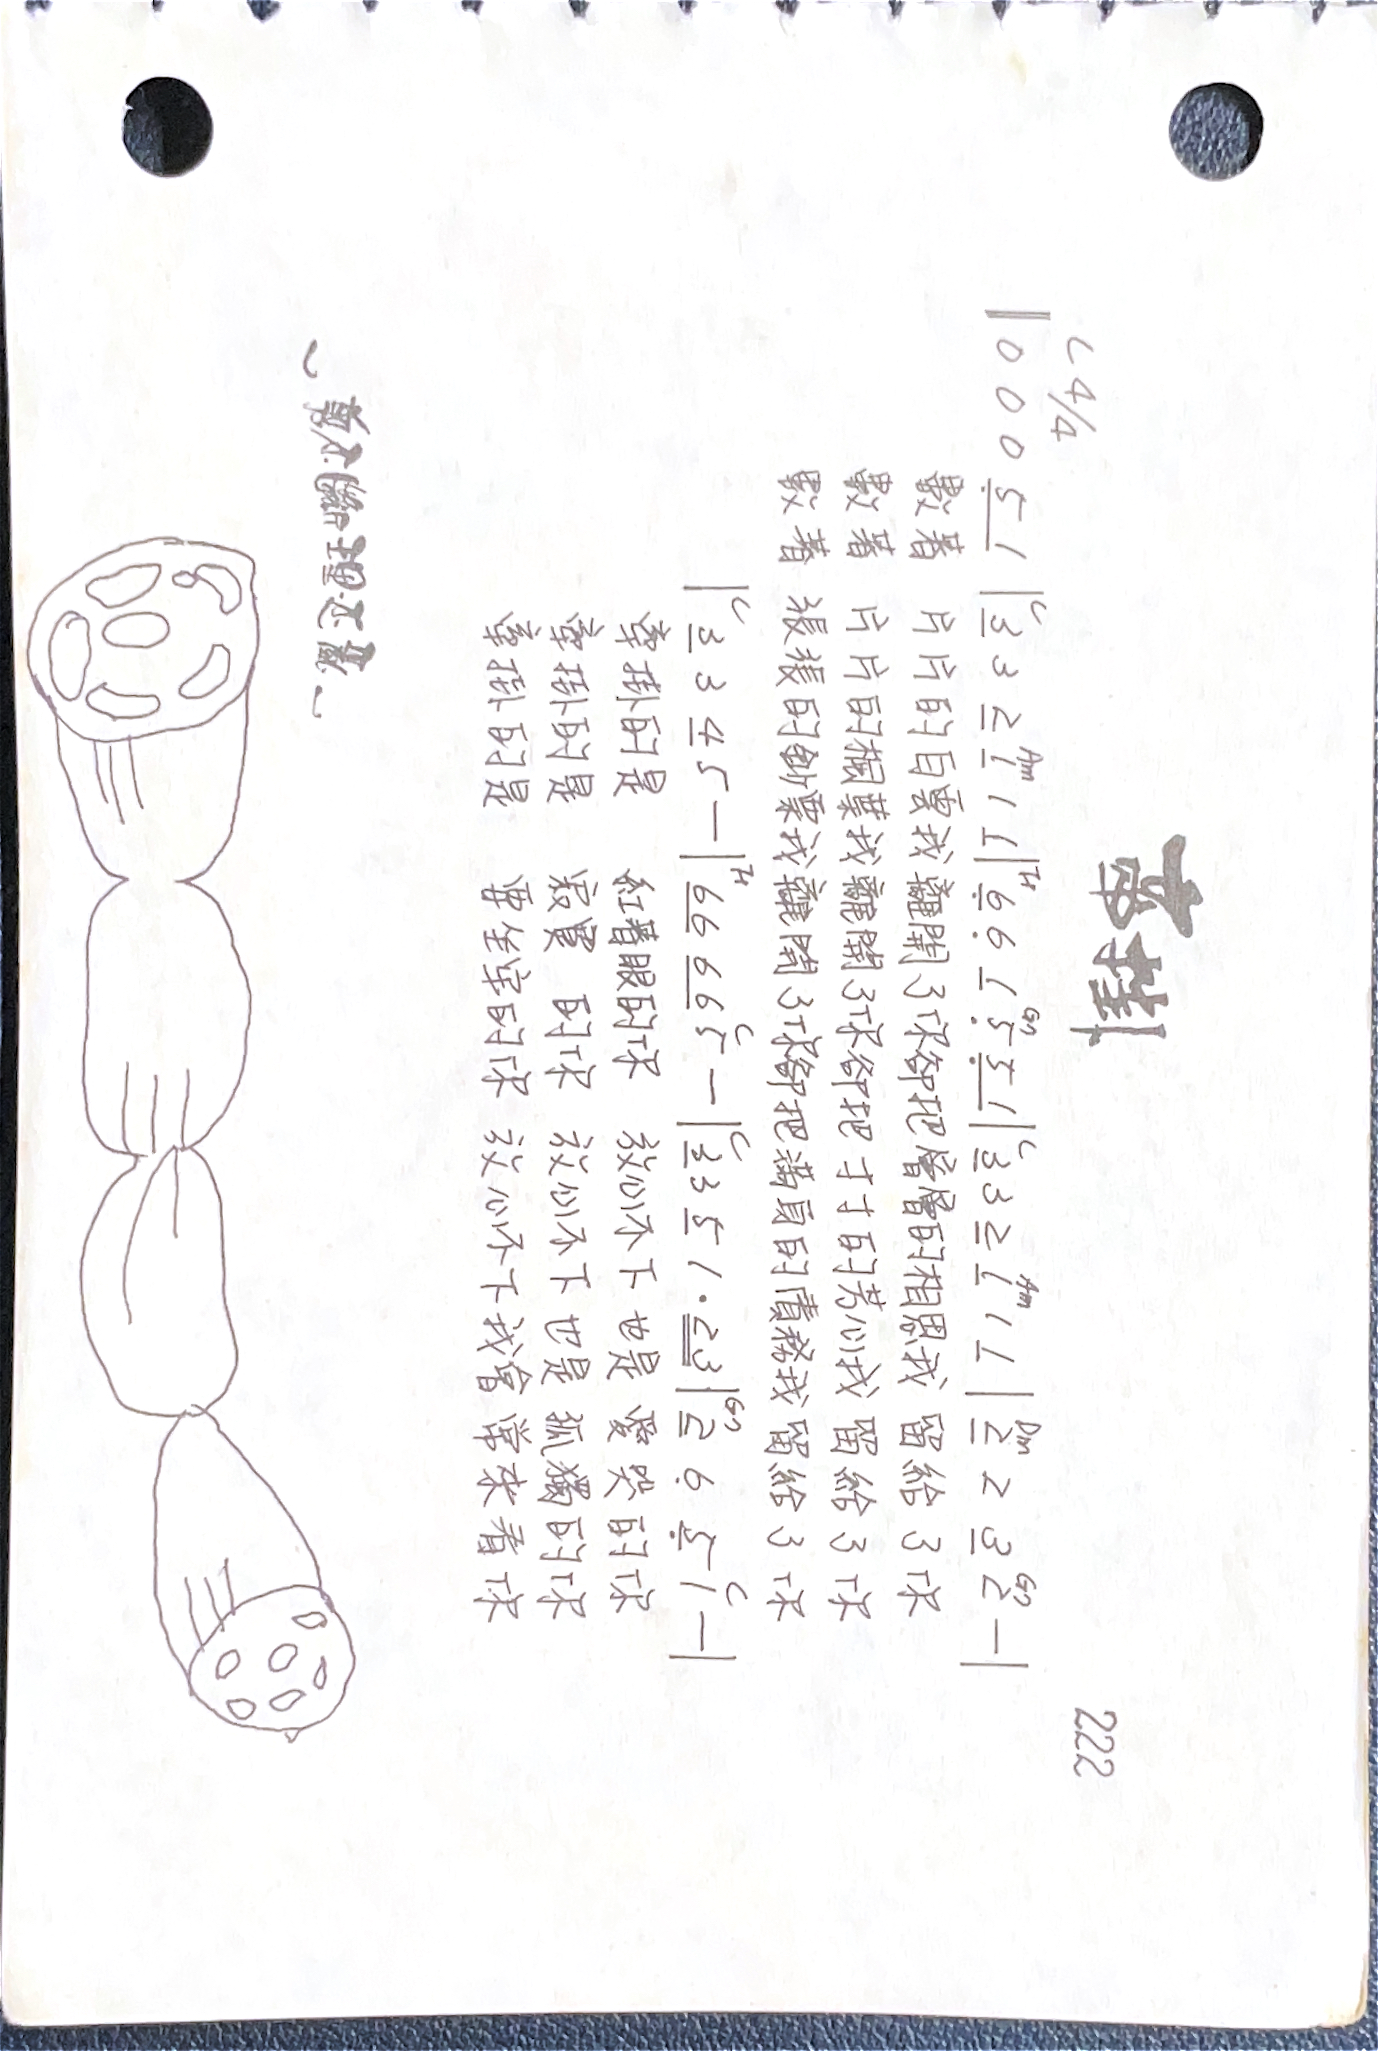 牽掛
222
C 4/4
C Am F G7 C Am Dm G7
| 0 0 0 5 1 | 3 3 2 1 1 1 | 6 6 1 5 5 1 | 3 3 2 1 1 1 | 2 2 3 2 — |
數著 片片的白雲我離開了你卻把層層的相思我 留給了你
數著 片片的楓葉我離開了你卻把寸寸的芳心我 留給了你
數著 張張的鈔票我離開了你卻把滿身的債務我 留給了你
C F C C G7 C
| 3 3 4 5 — | 6 6 6 6 5 — | 3 3 5 1 . 2 3 | 2 6 5 1 — |
牽掛的是 紅著眼的你 放心不下也是愛哭的你
牽掛的是 寂寞 的你 放心不下也是孤獨的你
牽掛的是 要坐牢的你 放心不下我會常來看你
~ 剪不斷.理还亂 ~